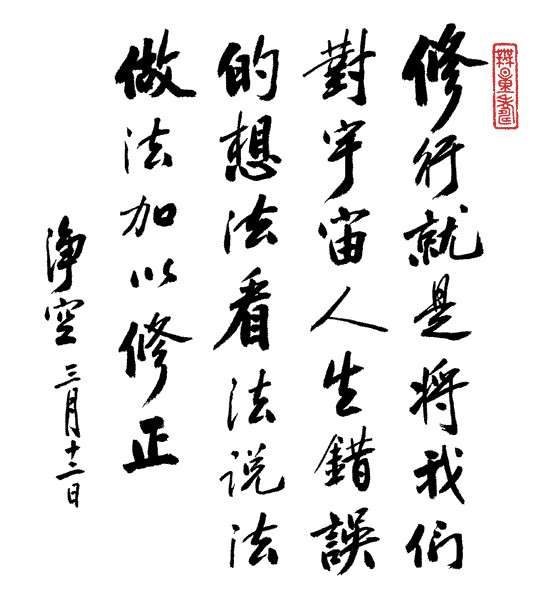 修行就是将我们
對宇宙人生錯誤
的想法看法说法
做法加以修正
淨空
三月十二日